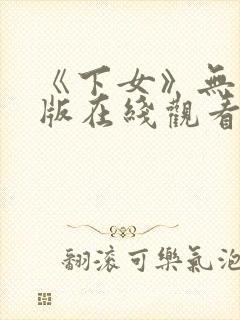 《下女》無
版在綫觀看
翻滚可樂氣泡